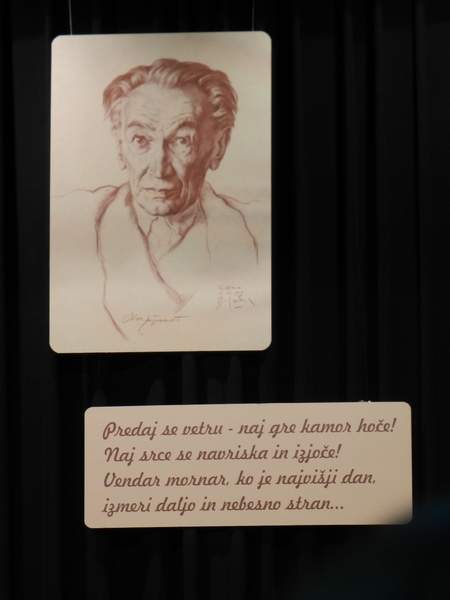 Predaj se vetru - naj gre kamor hoče!
Naj srce se navriska in izjoče!
Vendar mornar, ko je najvišji dan,
izmeri daljo in nebesno stran...